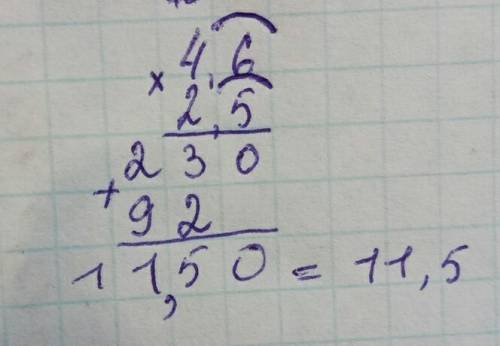 × 4,6
2,5
230
+
92
11,50 = 11,5